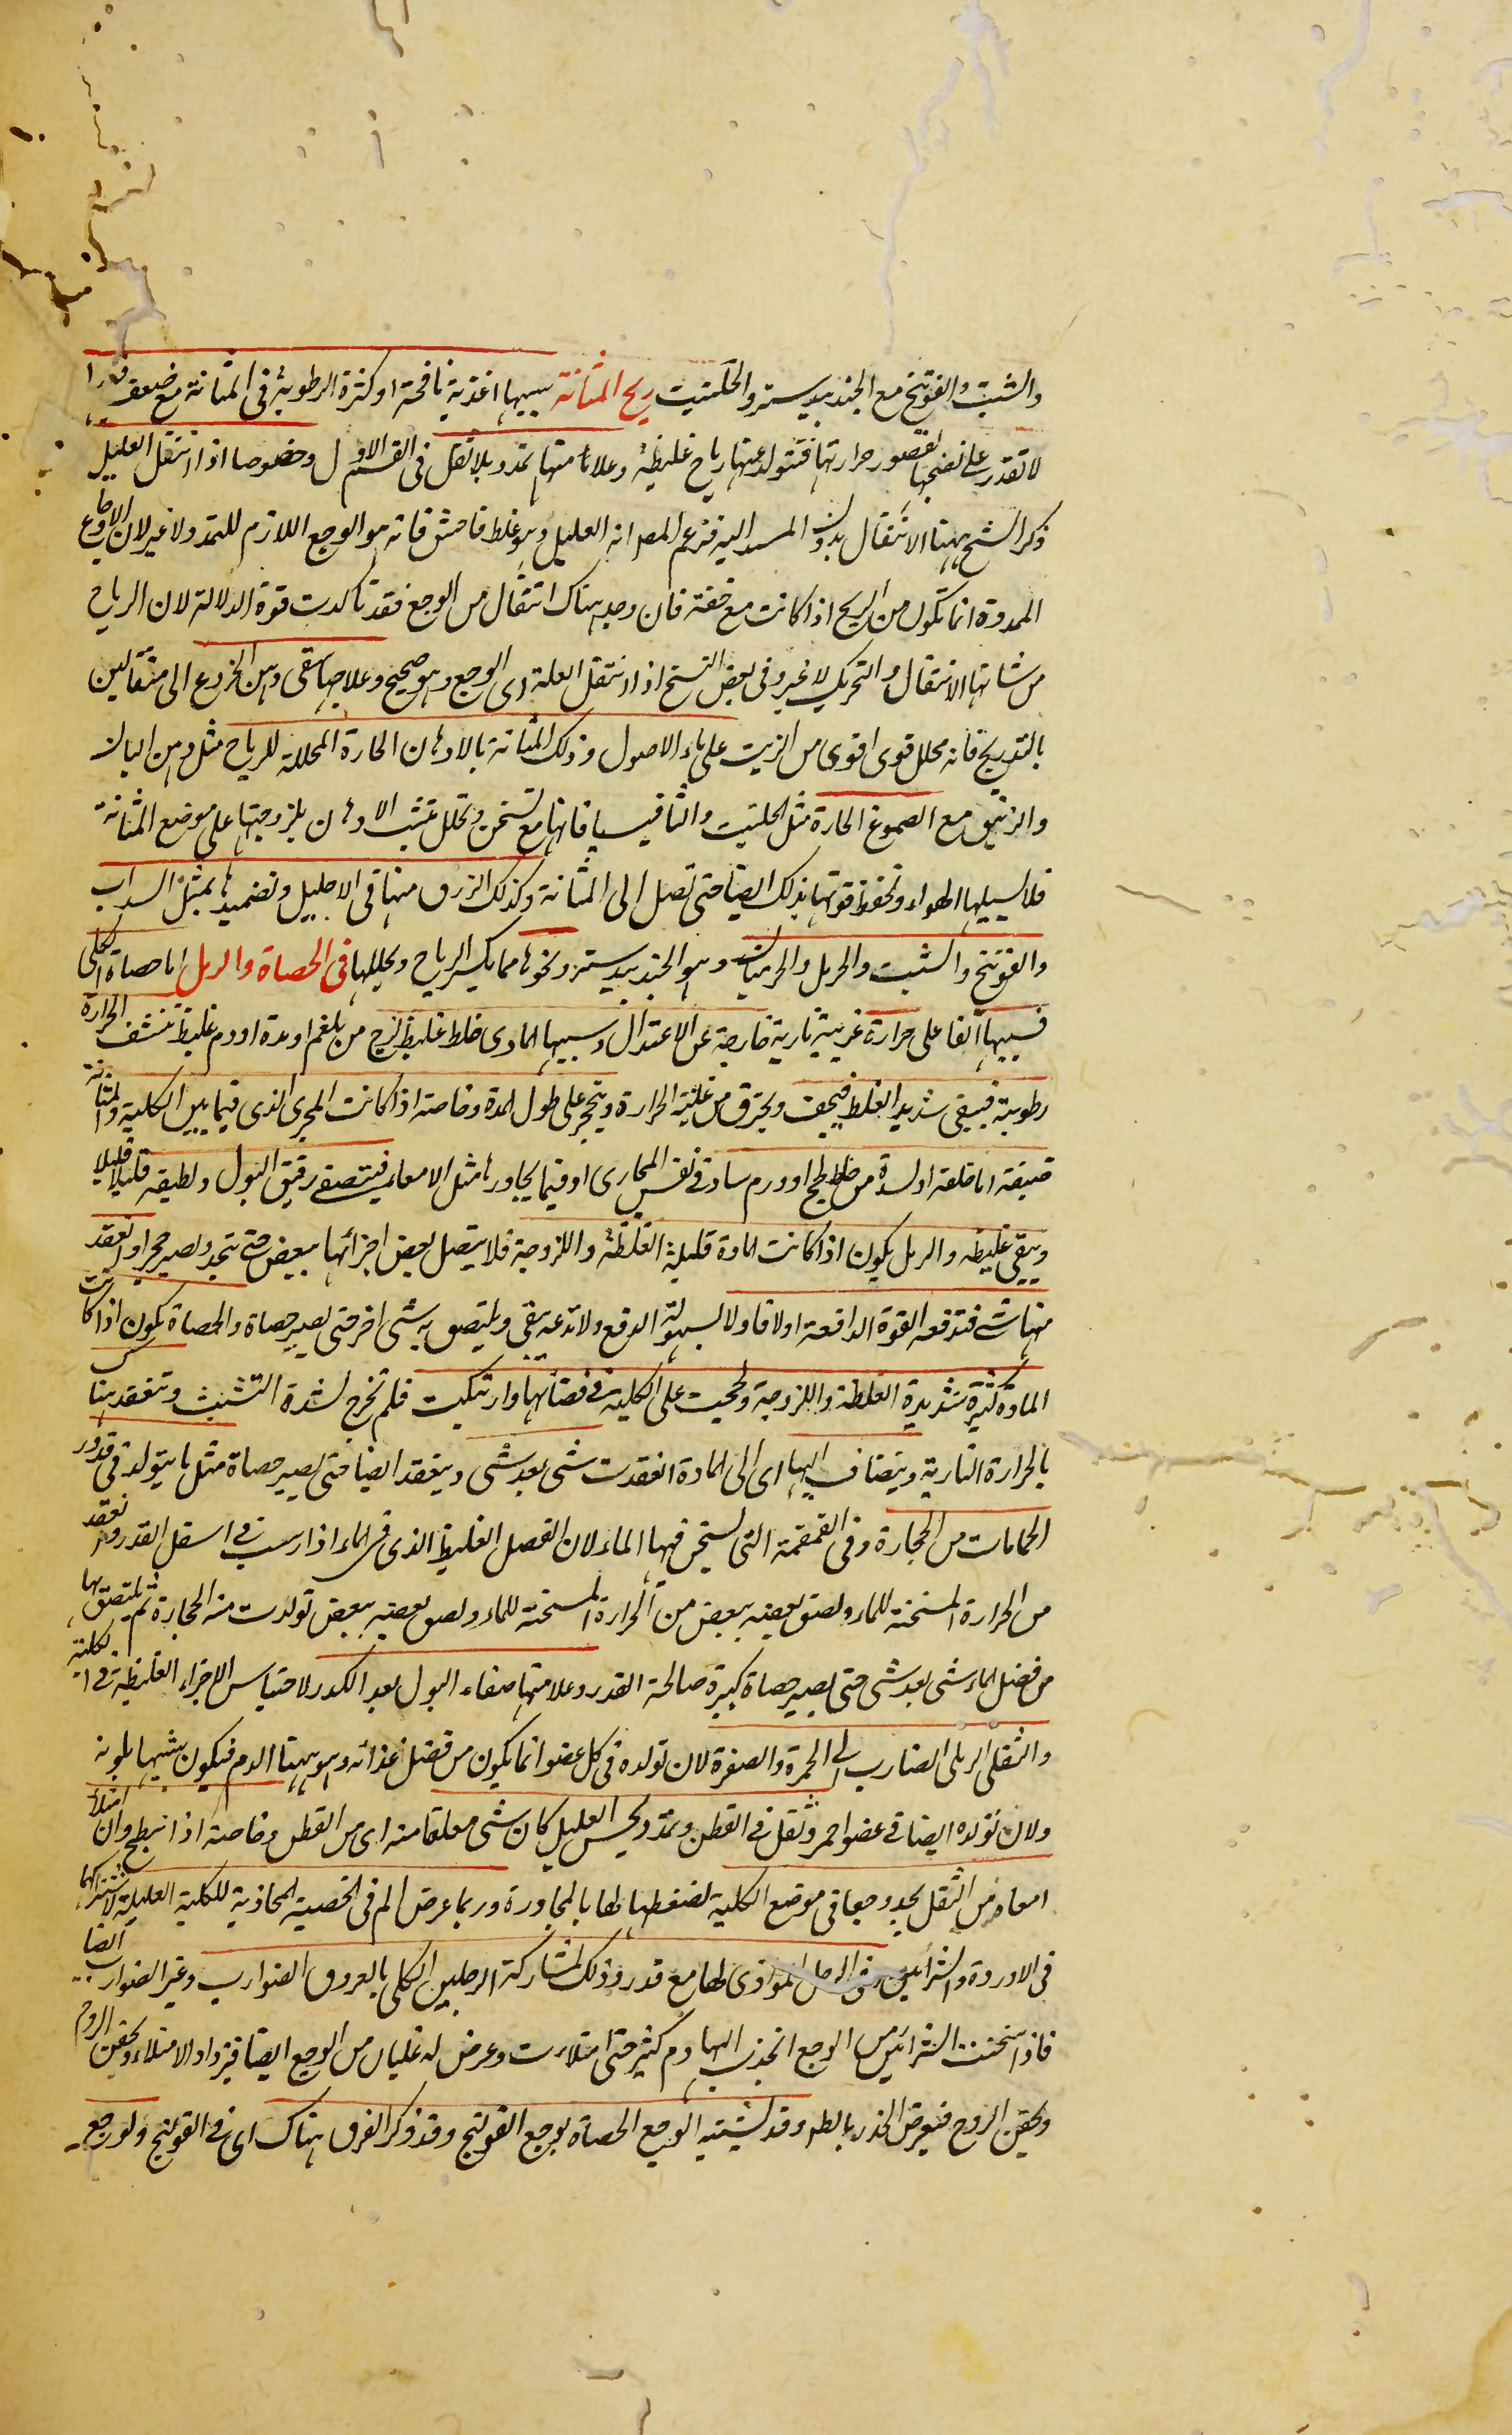 والشبت والفوتنج مع الجندبيدستر والحلتيت ريح المثانة سببها اغذية نافخة او كثرة الرطوبة فى المثانة مع ضعف
لا تقدر على نضجها لقصور حرارتها فتتولد عنها رياح غليظة وعلامتها تمدد بلا ثقل فى القسم الاول وخصوصا اذا انتقل العليل
ذكر الشيخ ههنا الانتقال بدون المسند اليه فزعم المصر انه العليل وهو غلط فاحش فانه هو الوجع اللازم للتمدد ولا غير لان الاوجاع
الممددة انما تكون من الريح اذا كانت مع خفة فان وجد هناك انتقال من الوجع فقد تاكدت قوة الدلالة لان الرياح
من شانها الانتقال والتحريك لا غير وفى بعض النسخ اذا انتقل العلة اى الوجع وهو صحيح وعلاجها سقى دهن الخروع الى مثقالين
بالتدريج فانه محلل قوى اقوى من الزيت على ماء الاصول ودلك المثانة بالادهان الحارة المحللة للرياح مثل دهن البان
والزنبق مع الصموغ الحارة مثل الحلتيت والثافسيا فانها مع تسخن وتحلل تثبت الادهان بلزوجتها على موضع المثانة
فلا يسيلها الهواء وتحفظ قوتها بذلك ايضا حتى تصل الى المثانة وكذلك الزرق منها فى الاحليل وتضميدها بمثل السداب
والفوتنج والشبت والحرمل والجرميان وهو الجندبيدستر ونحوها مما يكسر الرياح ويحللها فى الحصاة والرمل اما حصاة الكلى
فسببها الفاعلى حرارة غريبة نارية خارجة عن الاعتدال وسببها المادى خلط غليظ لزج من بلغم او مدة او دم غليظ تنشف الحرارة
رطوبته فيبقى شديد الغلظ فيجف ويحترق من غلبة الحرارة ويتحجر على طول المدة وخاصة اذا كانت المجرى الذى فيما بين الكلية والمثانة
ضيقة اما خلقة او لسدة من خلط لحج او ورم ساد فى نفس المجارى او فيما يجاورها مثل الامعاء فيتصفى رقيق البول ولطيفه قليلا قليلا
ويبقى غليظه والرمل يكون اذا كانت المادة قليلة الغلظة واللزوجة فلا يتصل بعض اجزائها ببعض حتى يتحد ويصير حجرا وانعقد
منها شئ فتدفعه القوة الدافعة اولا فاولا لسهولة الدفع ولا تدعه يبقى ويلتصق به شئ اخر حتى يصير حصاة والحصاة تكون اذا كانت
المادة كثيرة شديدة الغلظة واللزوجة ولحجت على الكلية فى فضائها وارتبكت فلم تخرج لشدة التشبث وتنعقد هنا
بالحرارة النارية وينضاف اليها اى الى المادة انعقدت شئ بعد شئ وينعقد ايضا حتى يصير حصاة مثل ما يتولد فى قدور
الحمامات من الحجارة وفى القمقمة التى يسخن فيها الماء لان الفصل الغليظ الذى فى الماء اذا رسب فى اسفل القدر وانعقد
من الحرارة المسخنة للماء ولصق بعضه ببعض من الحرارة المسخنة للماء ولصق بعضه ببعض تولدت منه الحجارة ثم يلتصق بها
من فضل الماء شئ بعد شئ حتى يصير حصاة كبيرة صالحة القدر وعلامتها صفاء البول بعد الكدر لاحتباس الاجزاء الغليظة فى الكلية
والثفل الرملى الضارب الى الحمرة والصفرة لان تولده فى كل عضو انما يكون من فضل غذائه وهو ههنا الدم فيكون شبيها بلونه
ولان تولده ايضا فى عضو احمر وثقل فى القطن وتمدد يحس العليل كان شئ معلقا منه اى من القطن وخاصة اذا انبطح وان امتلأ
امعاؤه من الثفل يجد وجعا فى موضع الكلية لضغطها لها بالمجاورة وربما عرض الم فى الخصية المحاذية للكلية العليلة لاشتراكهما
فى الاوردة والشرائين وفى الرجل الموازى لها مع قدر وذلك لمشاركة الرجلين الكلى بالعروق الضوارب وغير الضوارب ايضا
فاذا سخنت الشرائين من الوجع انجذب اليها دم كثير حتى امتلأت وعرض له غليان من الوجع ايضا فيزداد الامتلاء ويحقن الروح
ويحقن الروح فيعرض الخدر بالطم وقد يشتبه الوجع الحصاة بوجع القولنج وقد ذكر الفرق هناك اى فى القولنج ولوجع